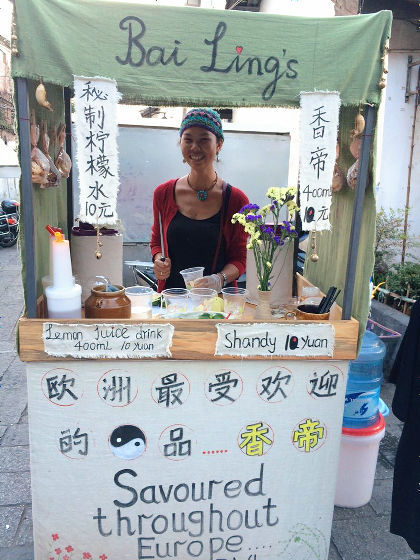 Bai Ling's
秘制柠檬水
10元
香帝
400mL
10元
Lemon Juice drink
400mL 10 Yuan
Shandy 10 Yuan
欧洲最受欢迎
的 品……香帝
Savoured
throughout
Europe...